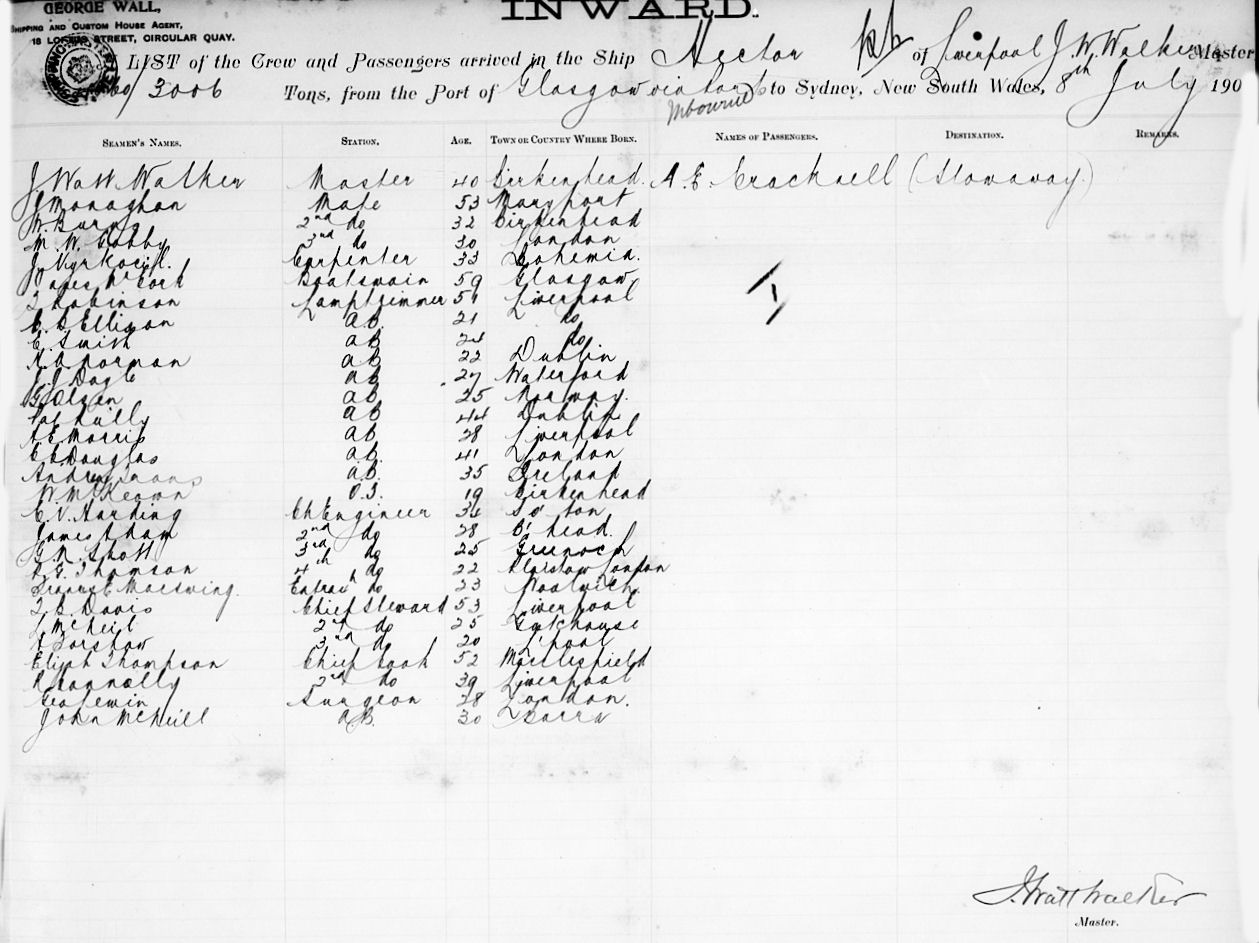 GEORGE WALL,
INWARD.
SHIPPING AND CUSTOM HOUSE AGENT,
18 LOFTUS STREET, CIRCULAR QUAY.
LIST of the Crew and Passengers arrived in the Ship Hector of Liverpool J. W. Walker Master
3006 Tons, from the Port of Glasgow via to Sydney, New South Wales, 8th July 190
Mbourne
SEAMEN'S NAMES. STATION. AGE. TOWN OR COUNTRY WHERE BORN. NAMES OF PASSENGERS. DESTINATION. REMARKS.
J Watt Walker Master 40 Birkenhead. A. E. Cracknell (Stowaway.)
J Monaghan Mate 53 Maryport
W. Burns 2nd do 32 Birkenhead
M. W. 3rd do 30 London
Carpenter 33 Bohemia.
James McCork Boatswain 59 Glasgow
T Robinson Lamptrimmer 51 Liverpool
C. B Ellison AB 21 do
C. Smith AB 24 do
Norman AB 22 Dublin
J. J Doyle AB 27 Waterford
G. Olsen AB 25 Norway.
Pat Kully AB 44 Dublin
A E Morris AB 28 Liverpool
C Douglas AB. 41 London
Andrew AB. 35 Ireland
W. McKeown O.S. 19 Birkenhead
C. V. Harding Ch Engineer 34 So'ton
James Sham 2nd do 28 B'head.
G. N. Shott 3rd do 25 Greenock
R. G. Thomson 4th do 22 Plaistow London
do 23 Woolwich.
T. B. Davis Chief Steward 53 Liverpool
J. McNeil 2nd do 25 Gatehouse
A Forshaw 3rd do 20 L'pool
Elijah Thompson Chief Cook 52 Macclesfield
R Connolly 2nd do 39 Liverpool
Geo Lewin Surgeon 28 London.
John McNeill A.B. 30 Barra
J. Watt Walker
Master.